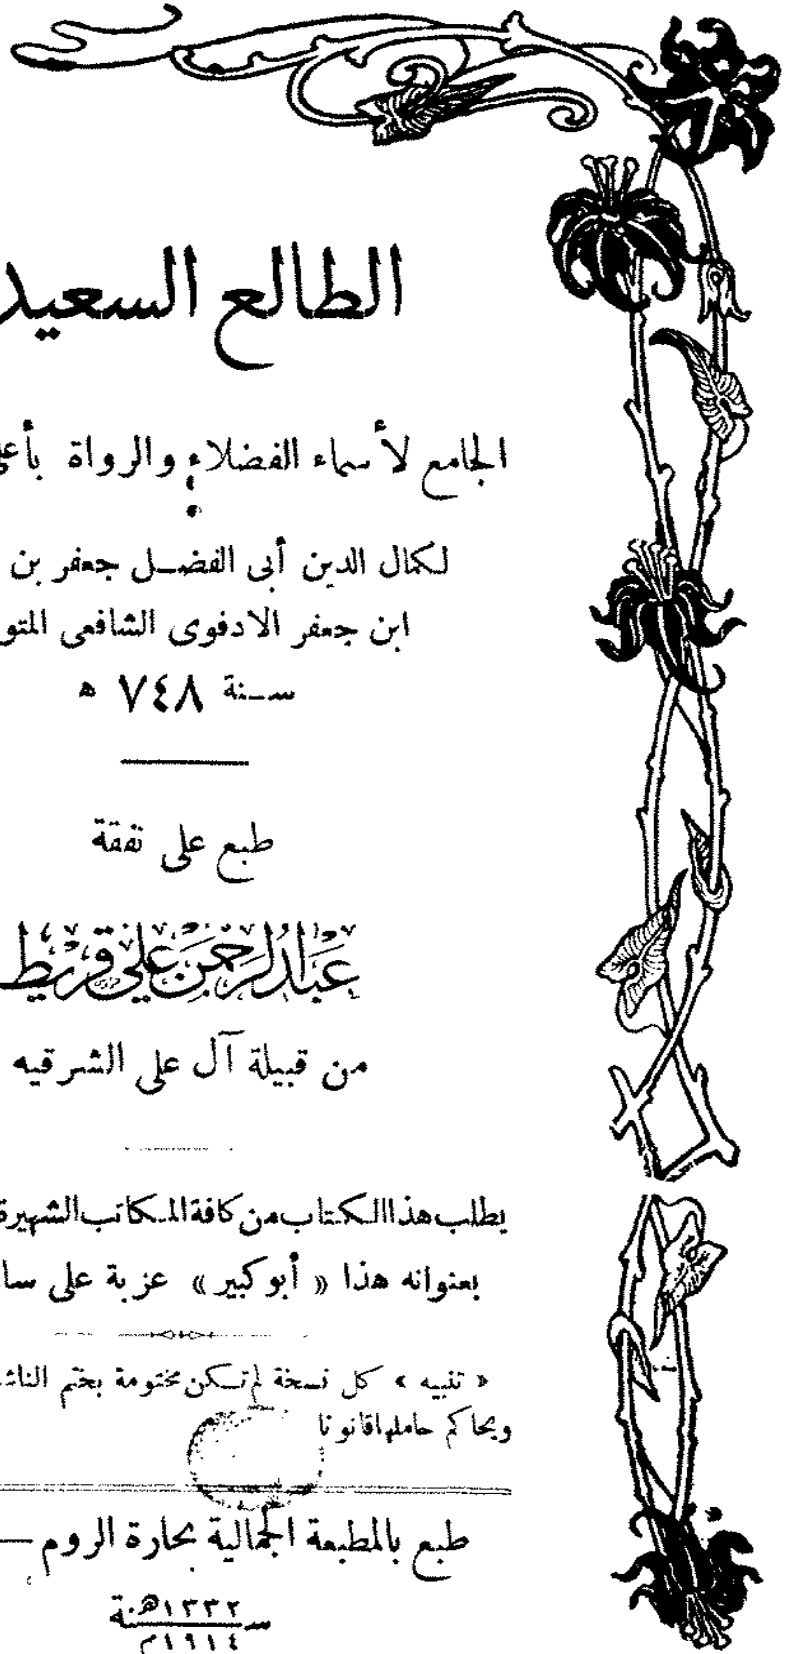 الطالع السعيد
الجامع لأسماء الفضلاء والرواة
لكمال الدين أبى الفضل جعفر بن
ابن جعفر الادفوى الشافعى
سنة ٧٤٨ ه
طبع على نفقة
عبد الرحمن على قريط
من قبيلة آل على الشرقيه
يطلب هذا الكتاب من كافة المكاتب الشهيرة
بعنوانه هذا « أبو كبير » عزبة على
« تنبيه » كل نسخة لم تكن مختومة بختم
ويحاكم حاملها قانونا
طبع بالمطبعة الجمالية بحارة الروم —
سنة ١٣٣٢ ه
١٩١٤ م